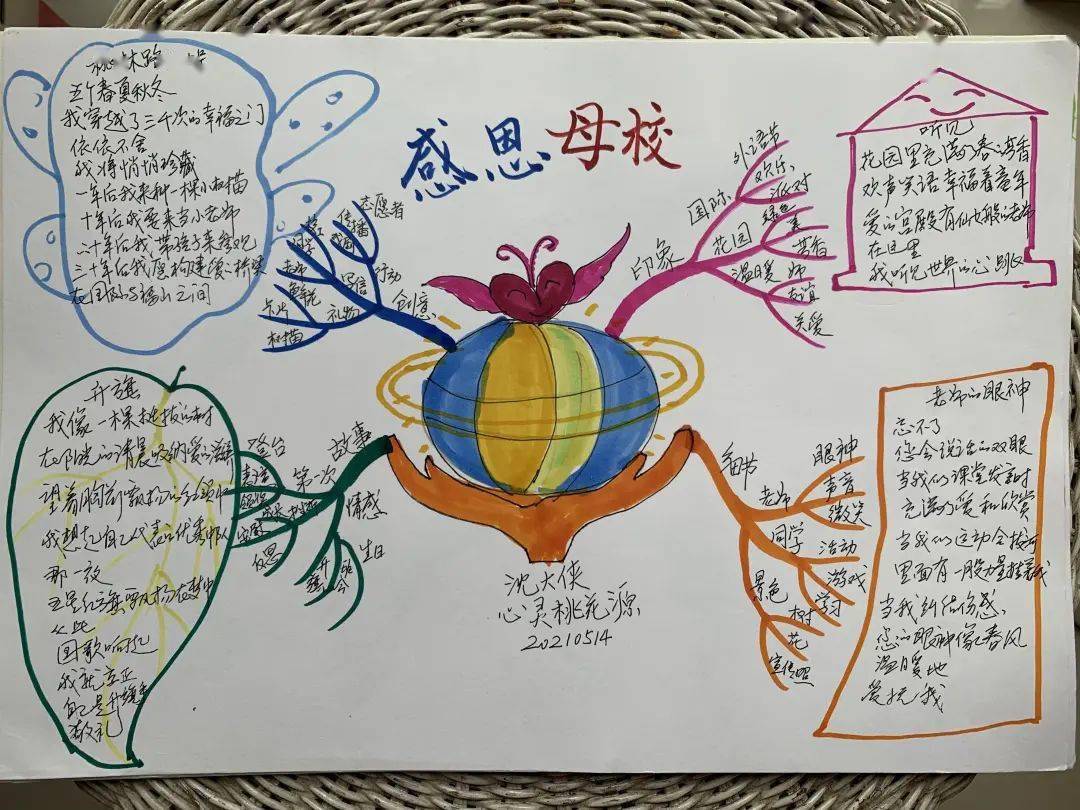 感恩母校
五个春夏秋冬
我穿越了三千次的幸福之门
依依不舍
我将悄悄珍藏
一年后我来种一棵小树苗
十年后我要来当小老师
二十年后我带孩子来参观
三十年后我愿构建
在国际与福山之间
听见
花园里充满了春的清香
欢声笑语幸福着童年
爱的宫殿有仙女般的老师
在这里
我听见世界的心跳
创意
行动
志愿者
传播
礼物
鲜花
卡片
树苗
印象
国际
外语节
欢乐
派对
花园
绿色
苔香
温暖
师
友谊
关爱
升旗
我像一棵挺拔的树
在阳光的清晨吸纳爱的滋养
望着胸前
我想起自己代表的优秀中队
那一放
五星红旗飘扬在
从此
国歌响起
我就立正
自己是升旗手
敬礼
故事
第一次
登台
情感
生日
细节
老师
眼神
声音
微笑
同学
活动
游戏
学习
景色
树
花
宣传照
老师的眼神
忘不了
您会说话的双眼
当我们课堂发言时
充满了爱和欣赏
当我们运动会拔河
里面有一股力量推着我
当我纠结伤感
您的眼神像春风
温暖地
爱抚我
沈大侠
心灵桃花源
20210514